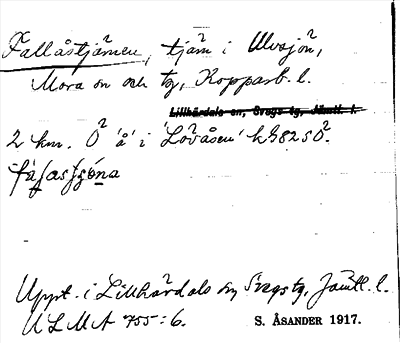 Fallåstjärnen, tjärn i Ulvsjön,
Mora sn och tg, Kopparb. l.
Lillhärdals sn, Svegs tg, Jämtl. l.
2 km. O 'å' i 'Lövåsen' k 98250.
Uppt. i Lillhärdals sn, Svegs tg, Jämtl. l.
ULMA 755:6. S. ÅSANDER 1917.